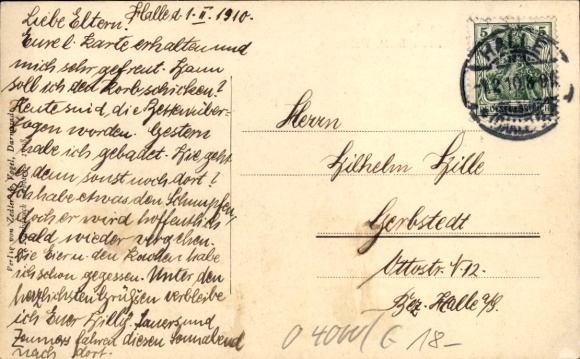 Halle d. 1.II. 1910.
Liebe Eltern!
Eure l. Karte erhalten und
mich sehr gefreut. Wann
soll ich den Korb schicken?
Heute sind die Betten über-
zogen worden. Gestern
habe ich gebadet. Wie geht
es denn sonst noch dort?
Ich habe etwas den Schnupfen,
doch er wird hoffentlich
bald wieder vergehen.
Die Eier u. den Kuchen habe
ich schon gegessen. Unter den
herzlichsten Grüssen verbleibe
ich Euer Willy. und
fahren diesen Sonnabend
nach dort.
Verlag von Zedler & Vogel, Darmstadt
5 5
HALLE
Herrn
Wilhelm Wille
Gerbstedt
Ottostr. 12
Bez. Halle a/S.
18-